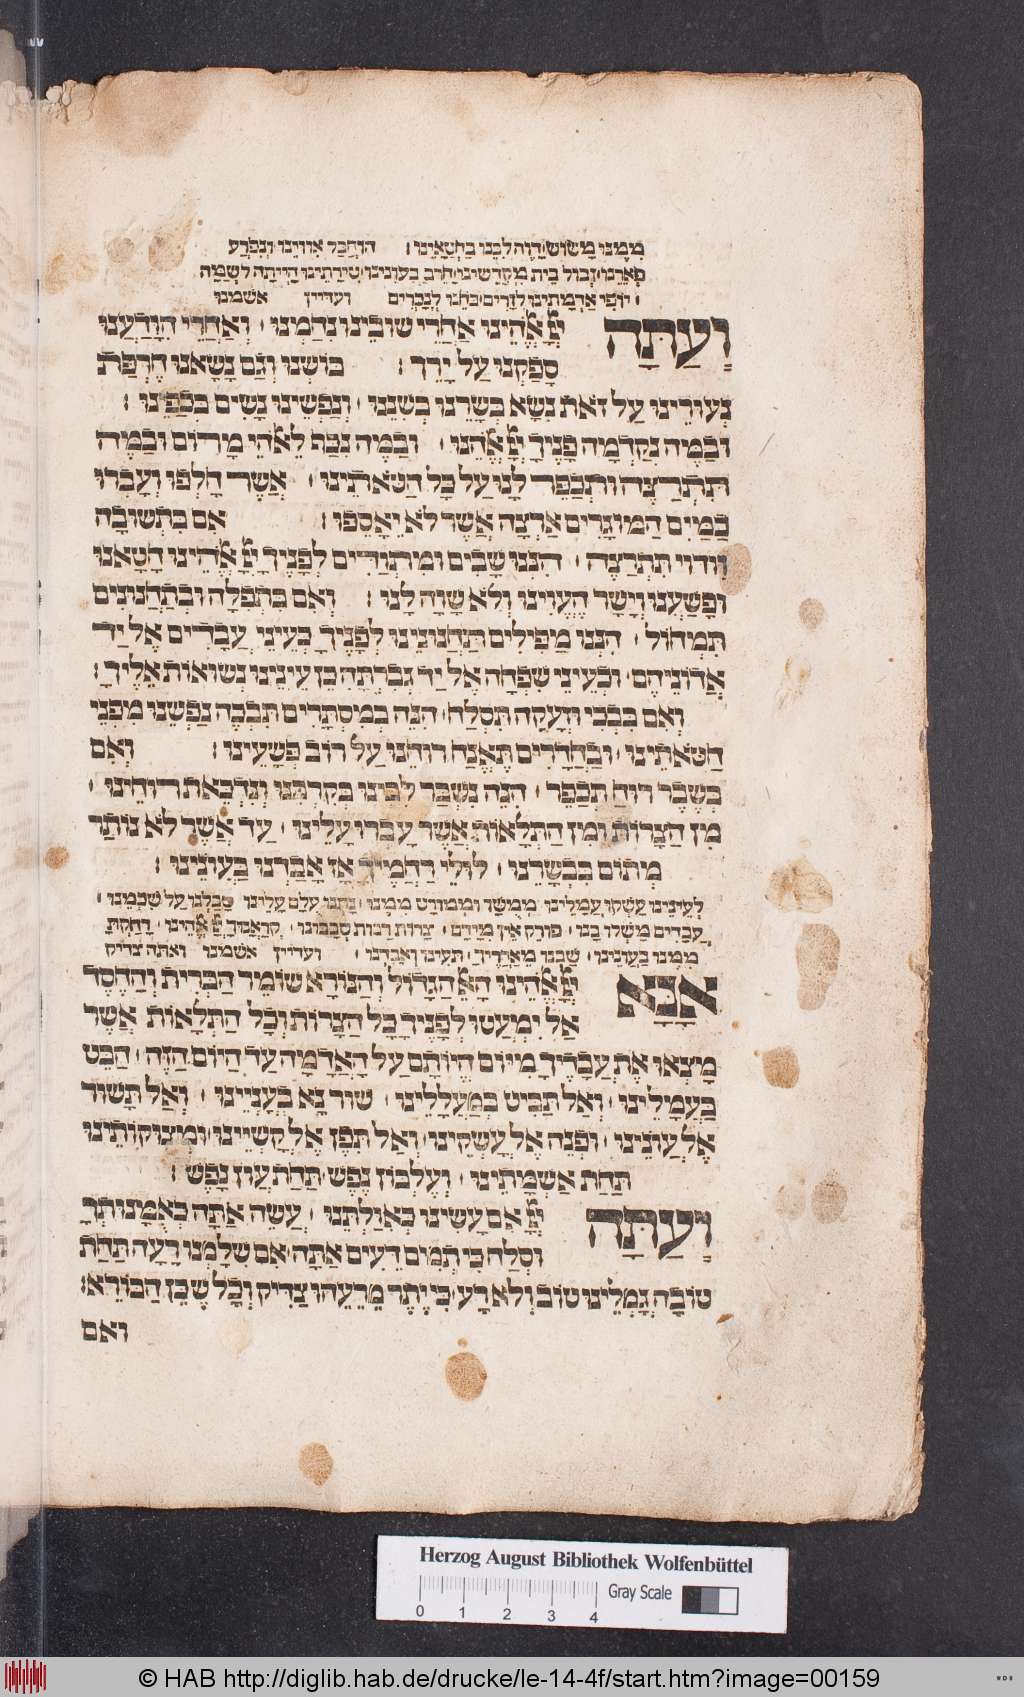 ממנו משוש דוה לבנו בחטאינו : הוחבל אוויינו ונפרע
פארנו זבול בית מקדשינו חרב בעונינו טירתינו הייתה לשמה
יופי אדמתינו לזרים כחנו לנכרים ועדיין אשמנו
ועתה יי אלהינו אחרי שובינו נחמנו ואחרי הוודענו
ספקנו על ירך : בושנו וגם נשאנו חרפת
נעורינו על זאת נשא בשרנו בשננו ונפשינו נשים בכפינו :
ובמה נקדמה פניך יי אלהנו ובמה נכף לאלהי מרום ובמה
תתרצה ותכפר לנו על כל חטאתינו אשר חלפו ועברו
כמים המוגרים ארצה אשר לא יאספו : אם בתשובה
וידוי תתרצה הננו שבים ומתוודים לפניך יי אלהינו חטאנו
ופשענו וישר העוינו ולא שוה לנו : ואם בתפלה ובתחנונים
תמחול הננו מפילים תחנונינו לפניך כעיני עבדים אל יד
אדוניהם וכעיני שפחה אל יד גברתה כן עינינו נשואות אליך :
ואם בבכי וזעקה תסלח הנה במסתרים תבכה נפשנו מפני
חטאתינו ובחדרים תאנח רוחנו על רוב פשעינו : ואם
בשברי רוח תכפר הנה נשבר לבינו בקרבנו ונדכאת רוחינו
מן הצרות ומן התלאות אשר עברו עלינו עד אשר לא נותר
מתום בבשרנו לולי רחמיך אז אבדנו בעונינו :
לעינינו עשקו עמלינו ממשך וממורט ממנו נתנו עלם עלינו סבלנו על שכמינו :
עבדים משלו בנו פורק אין מידם צרות רבות סבבונו קראנוך יי אלהינו רחקת
ממנו בעונינו שבנו מאחריך תעינו ואבדנו ועדיין אשמנו ואתה צדיק
אנא יי אלהינו האל הגדול והנורא שומר הברית והחסד
אל ימעטו לפניך כל הצרות וכל התלאות אשר
מצאו את עבדיך מיום היותם על האדמה עד היום הזה הבט
בעמלינו ואל תביט במעללינו שור נא בענייינו ואל תשור
אל עונינו ופנה אל עשקינו ואל תפן אל קשיינו ומצוקותינו
תחת אשמתינו ועלבון נפש תחת עון נפש :
ועתה יי אם עשינו כאולתנו עשה אתה כאמנותך
וסלח כי תמים דעים אתה אם שלמנו רעה תחת
טובה גמלינו טוב ולא רע כי יתר מרעהו צדיק וכל שכן הבורא :
ואם
Herzog August Bibliothek Wolfenbüttel
Gray Scale
0 1 2 3 4
© HAB http://diglib.hab.de/drucke/le-14-4f/start.htm?image=00159